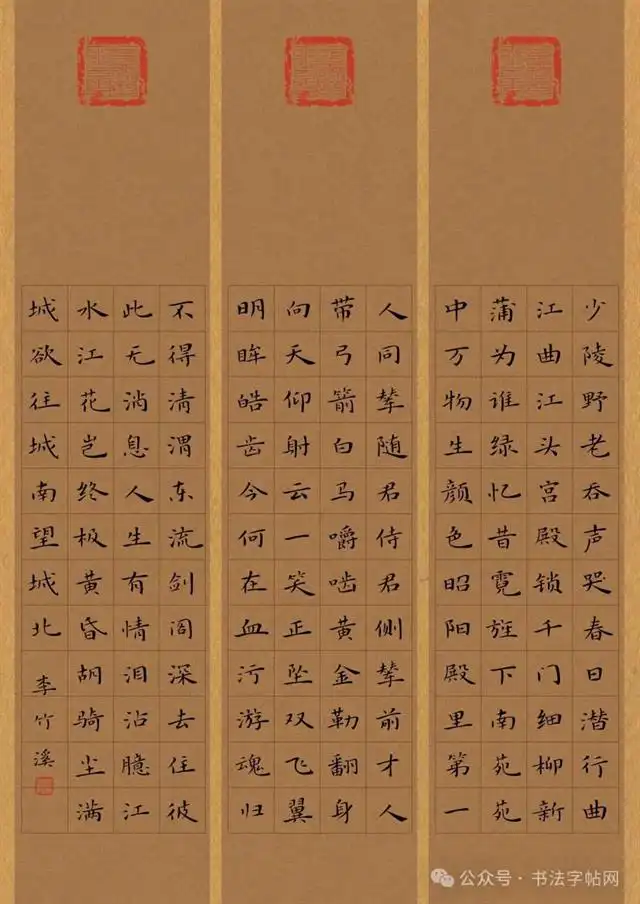 少陵野老吞声哭春日潜行曲
江曲江头宫殿锁千门细柳新
蒲为谁绿忆昔霓旌下南苑苑
中万物生颜色昭阳殿里第一
人同辇随君侍君侧辇前才人
带弓箭白马嚼啮黄金勒翻身
向天仰射云一笑正坠双飞翼
明眸皓齿今何在血污游魂归
不得清渭东流剑阁深去住彼
此无消息人生有情泪沾臆江
水江花岂终极黄昏胡骑尘满
城欲往城南望城北
李竹溪
公众号·书法字帖网